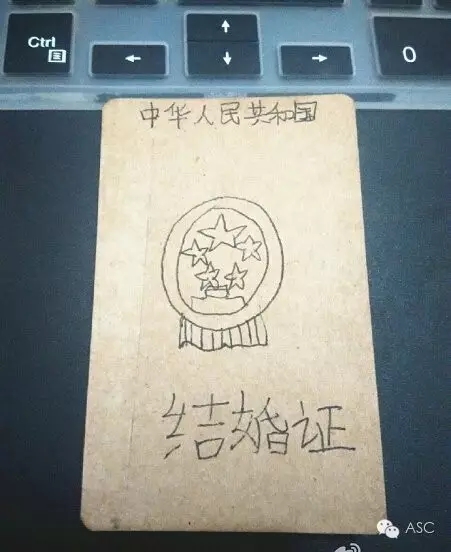 Ctrl
0
中华人民共和国
结婚证
ASC